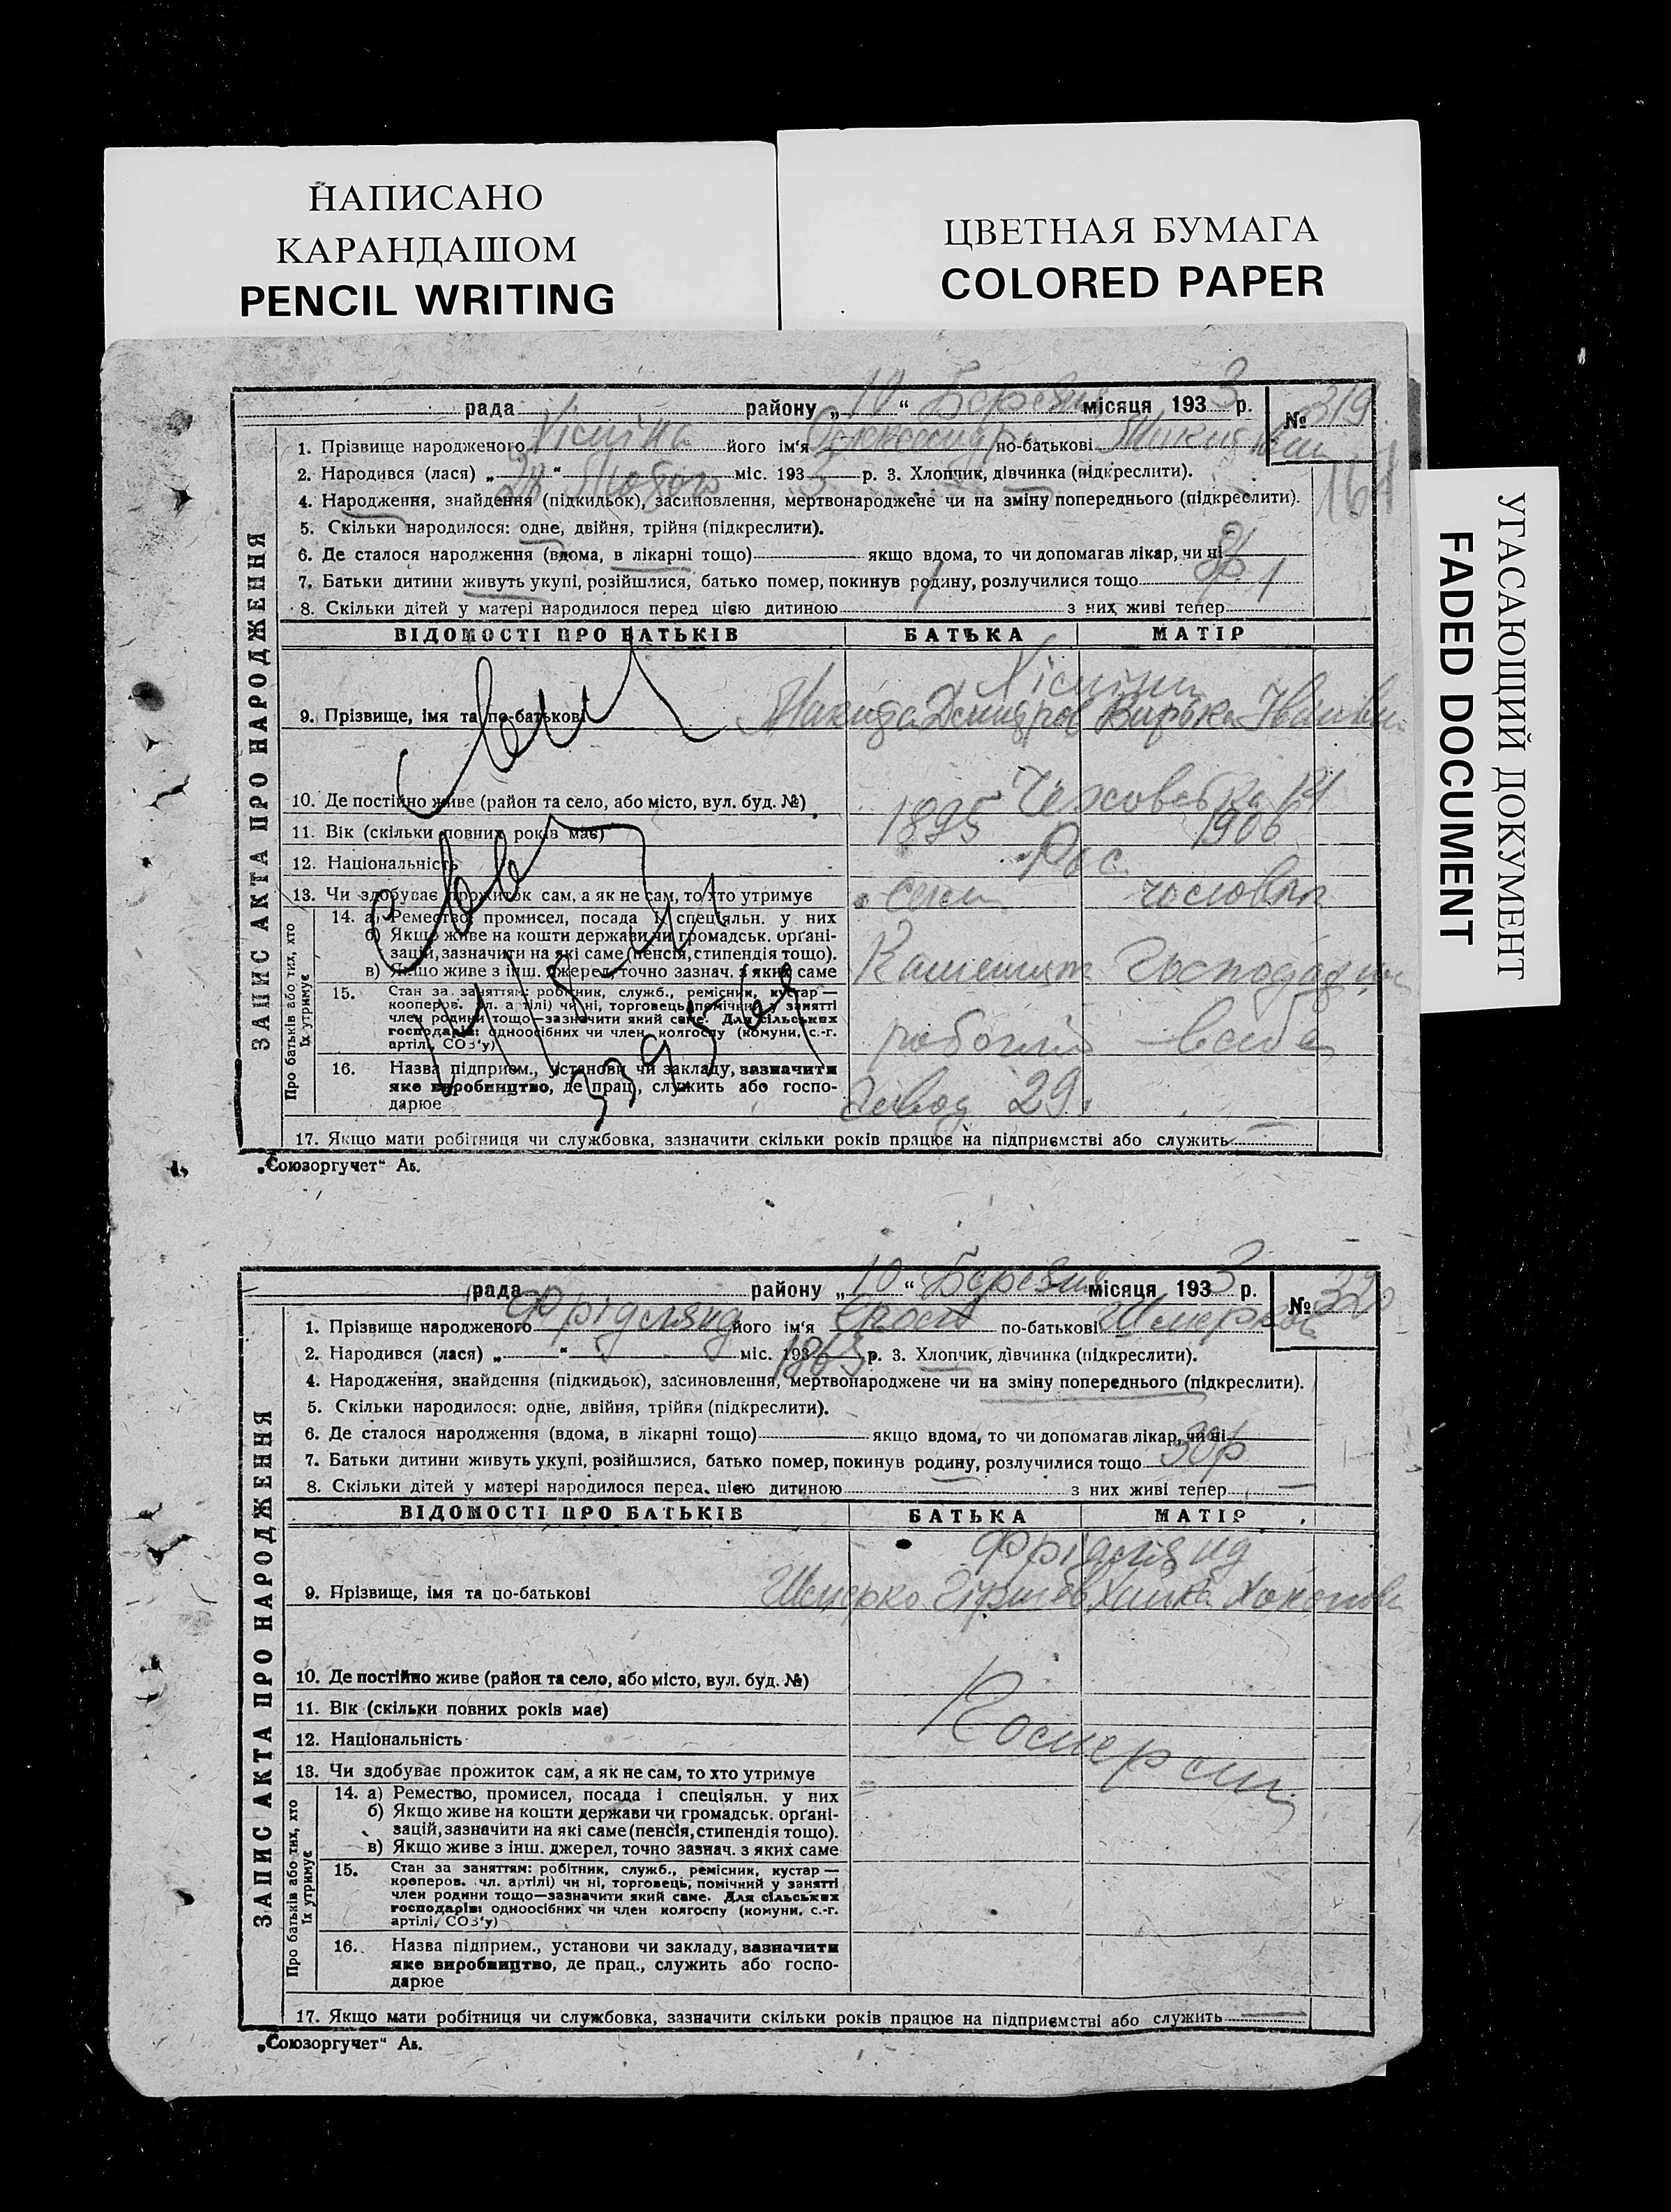 НАПИСАНО
КАРАНДАШОМ
PENCIL WRITING
ЦВЕТНАЯ БУМАГА
COLORED PAPER
УГАСАЮЩИЙ ДОКУМЕНТ
FADED DOCUMENT
рада району „10“ Березня місяця 1933 р. № 319
1. Прізвище народженого його ім‘я по-батькові
2. Народився (лася) „28“ Лютого міс. 1933 р. 3. Хлопчик, дівчинка (підкреслити).
161
4. Народження, знайдення (підкидьок), засиновлення, мертвонароджене чи на зміну попереднього (підкреслити).
5. Скільки народилося: одне, двійня, трійня (підкреслити).
6. Де сталося народження (вдома, в лікарні тощо) якщо вдома, то чи допомагав лікар, чи ні
7. Батьки дитини живуть укупі, розійшлися, батько помер, покинув родину, розлучилися тощо
8. Скільки дітей у матері народилося перед цією дитиною 1 з них живі тепер 1
ЗАПИС АКТА ПРО НАРОДЖЕННЯ
ВІДОМОСТІ ПРО БАТЬКІВ БАТЬКА МАТІР
9. Прізвище, імя та по-батькові Микита Дмитров
10. Де постійно живе (район та село, або місто, вул. буд. №)
11. Вік (скільки повних років має) 1895 1906
12. Національність Рос.
13. Чи здобуває прожиток сам, а як не сам, то хто утримує сам чоловік
Про батьків або тих, хто їх утримує
14. а) Ремество, промисел, посада і спеціяльн. у них
б) Якщо живе на кошти держави чи громадськ. органі-
зацій, зазначити на які саме (пенсія, стипендія тощо).
в) Якщо живе з інш. джерел, точно зазнач. з яких саме
15. Стан за заняттям: робітник, служб., ремісник, кустар—
кооперов. чл. артілі) чи ні, торговець, помічний у занятті
член родини тощо—зазначити який саме. Для сільських
господарів: одноосібних чи член колгоспу (комуни, с.-г.
артілі, СОЗ‘у)
16. Назва підприєм., установи чи закладу, зазначити
яке виробництво, де прац., служить або госпо-
дарює
Завод 29.
17. Якщо мати робітниця чи службовка, зазначити скільки років працює на підприємстві або служить —
„Союзоргучет“ Аь.
рада району „10“ Березня місяця 1933 р. № 320
1. Прізвище народженого Фрідлянд його ім‘я по-батькові
2. Народився (лася) „ “ міс. 193 1863 р. 3. Хлопчик, дівчинка (підкреслити).
4. Народження, знайдення (підкидьок), засиновлення, мертвонароджене чи на зміну попереднього (підкреслити).
5. Скільки народилося: одне, двійня, трійня (підкреслити).
6. Де сталося народження (вдома, в лікарні тощо) якщо вдома, то чи допомагав лікар, чи ні
7. Батьки дитини живуть укупі, розійшлися, батько помер, покинув родину, розлучилися тощо
8. Скільки дітей у матері народилося перед цією дитиною з них живі тепер —
ЗАПИС АКТА ПРО НАРОДЖЕННЯ
ВІДОМОСТІ ПРО БАТЬКІВ БАТЬКА МАТІР
Фрідлянд
9. Прізвище, імя та по-батькові
10. Де постійно живе (район та село, або місто, вул. буд. №)
11. Вік (скільки повних років має)
12. Національність
13. Чи здобуває прожиток сам, а як не сам, то хто утримує
Про батьків або тих, хто їх утримує
14. а) Ремество, промисел, посада і спеціяльн. у них
б) Якщо живе на кошти держави чи громадськ. органі-
зацій, зазначити на які саме (пенсія, стипендія тощо).
в) Якщо живе з інш. джерел, точно зазнач. з яких саме
15. Стан за заняттям: робітник, служб., ремісник, кустар—
кооперов. чл. артілі) чи ні, торговець, помічний у занятті
член родини тощо—зазначити який саме. Для сільських
господарів: одноосібних чи член колгоспу (комуни, с.-г.
артілі, СОЗ‘у)
16. Назва підприєм., установи чи закладу, зазначити
яке виробництво, де прац., служить або госпо-
дарює
17. Якщо мати робітниця чи службовка, зазначити скільки років працює на підприємстві або служить —
„Союзоргучет“ Аь.